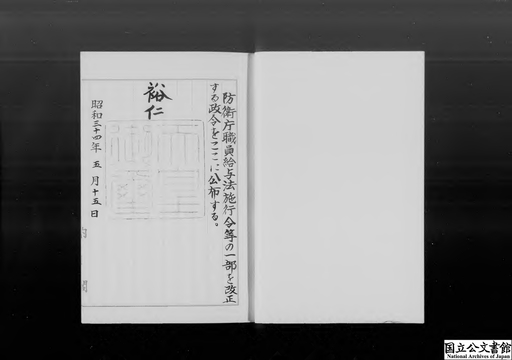 防衛庁職員給与法施行令等の一部を改正
する政令をここに公布する。
裕仁
昭和三十四年 五 月十五日
国立公文書館
National Archives of Japan